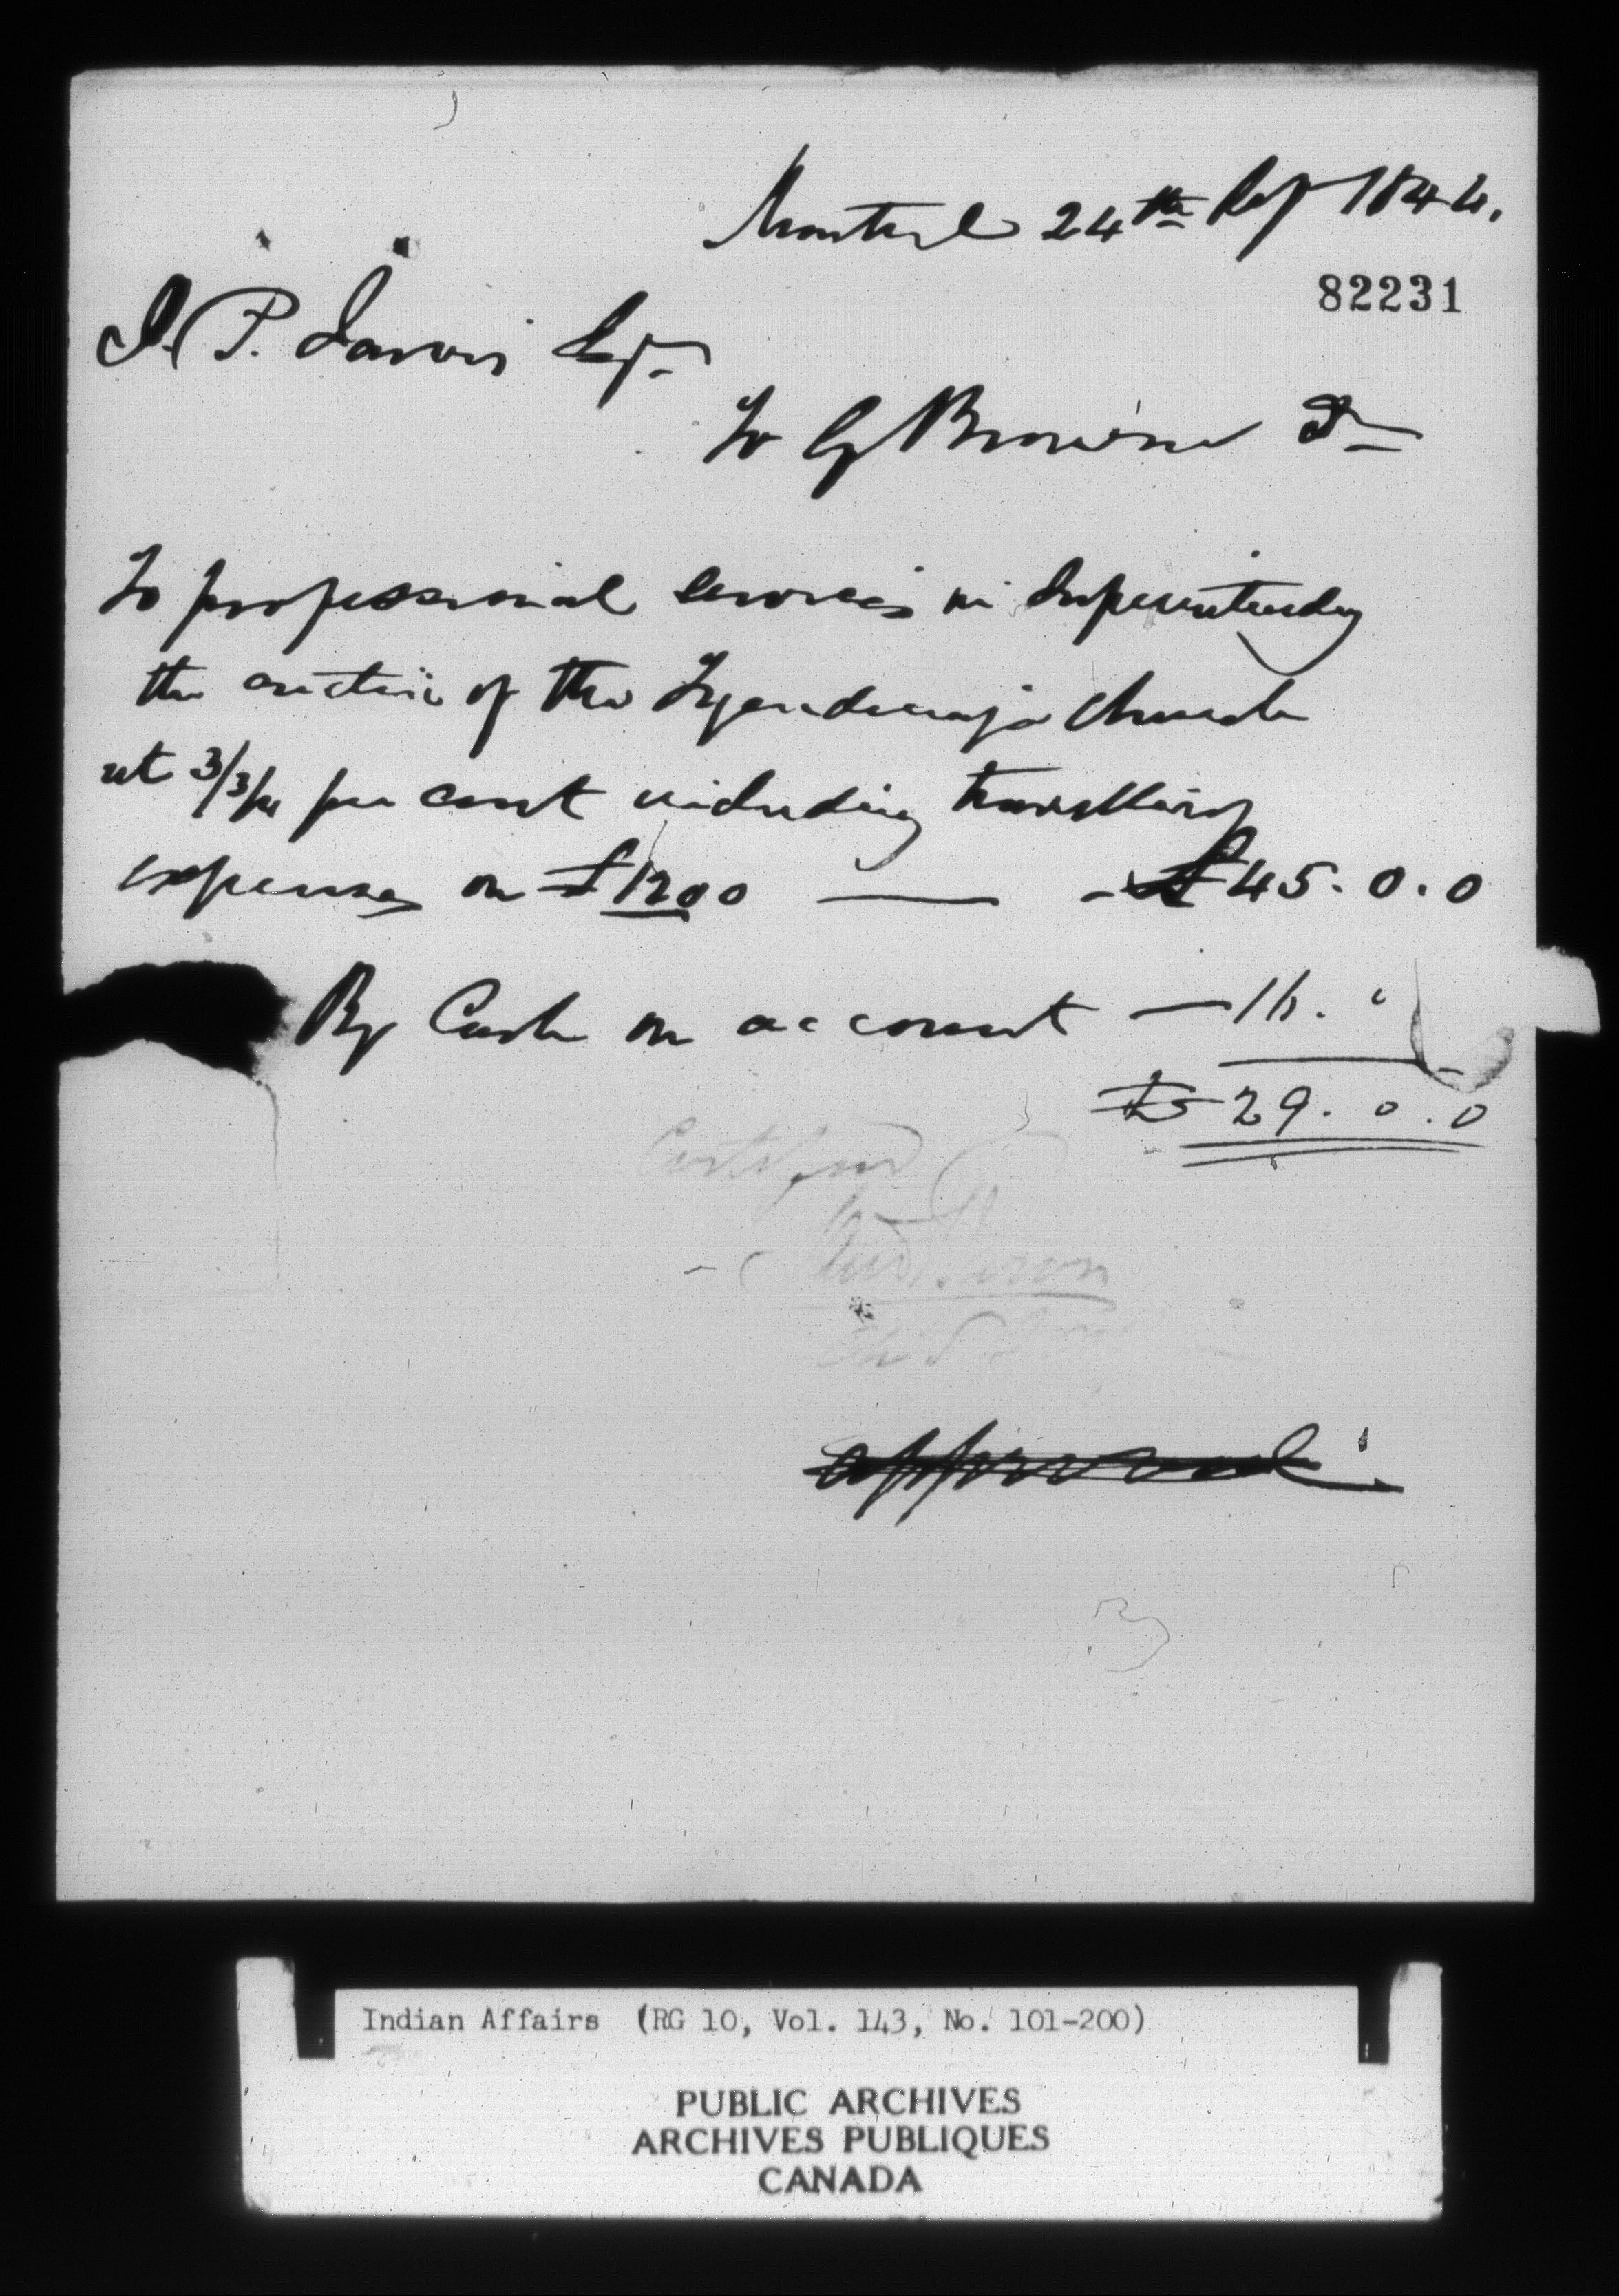 Montreal 24th Sep 1844.
82231
S. P. Jarvis Esqr
To G Browne Dr
To professional services in Superintending
the erection of the Tyendinaga Church
at 3/3/4 per cent including travelling
expenses on £1200 — £45.0.0
By Cash on account — 16. "
£29.0.0
Certified
approved
Indian Affairs (RG 10, Vol. 143, No. 101-200)
PUBLIC ARCHIVES
ARCHIVES PUBLIQUES
CANADA